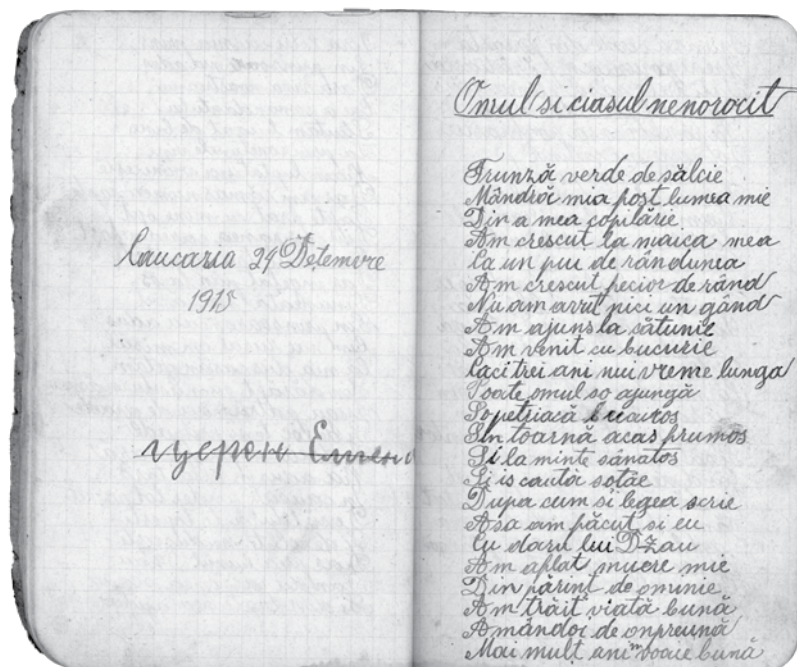 Caucazia 24 Dețemvre
1915
Omul si ciasul nenorocit
Frunză verde de sălcie
Mândră mia fost lumea mie
Din a mea copilărie
Am crescut la maica mea
Ca un puu de rândunea
Am crescut fecior de rând
Nu am avut nici un gând
Am ajuns la cătunie
Am venit cu bucurie
Caci trei ani nui vreme lunga
Poate omul so ajungă
Sopetriacă
Sin toarnă acas frumos
Si la minte sănatos
Si is caută soțâe
Dupa cum si legea scrie
Asa am făcut si eu
Cu daru lui Dzău
Am aflat muere mie
Din părint de ominie
Am trăit viată bună
Amândoi de onpreună
Mai mult ani voaie bună